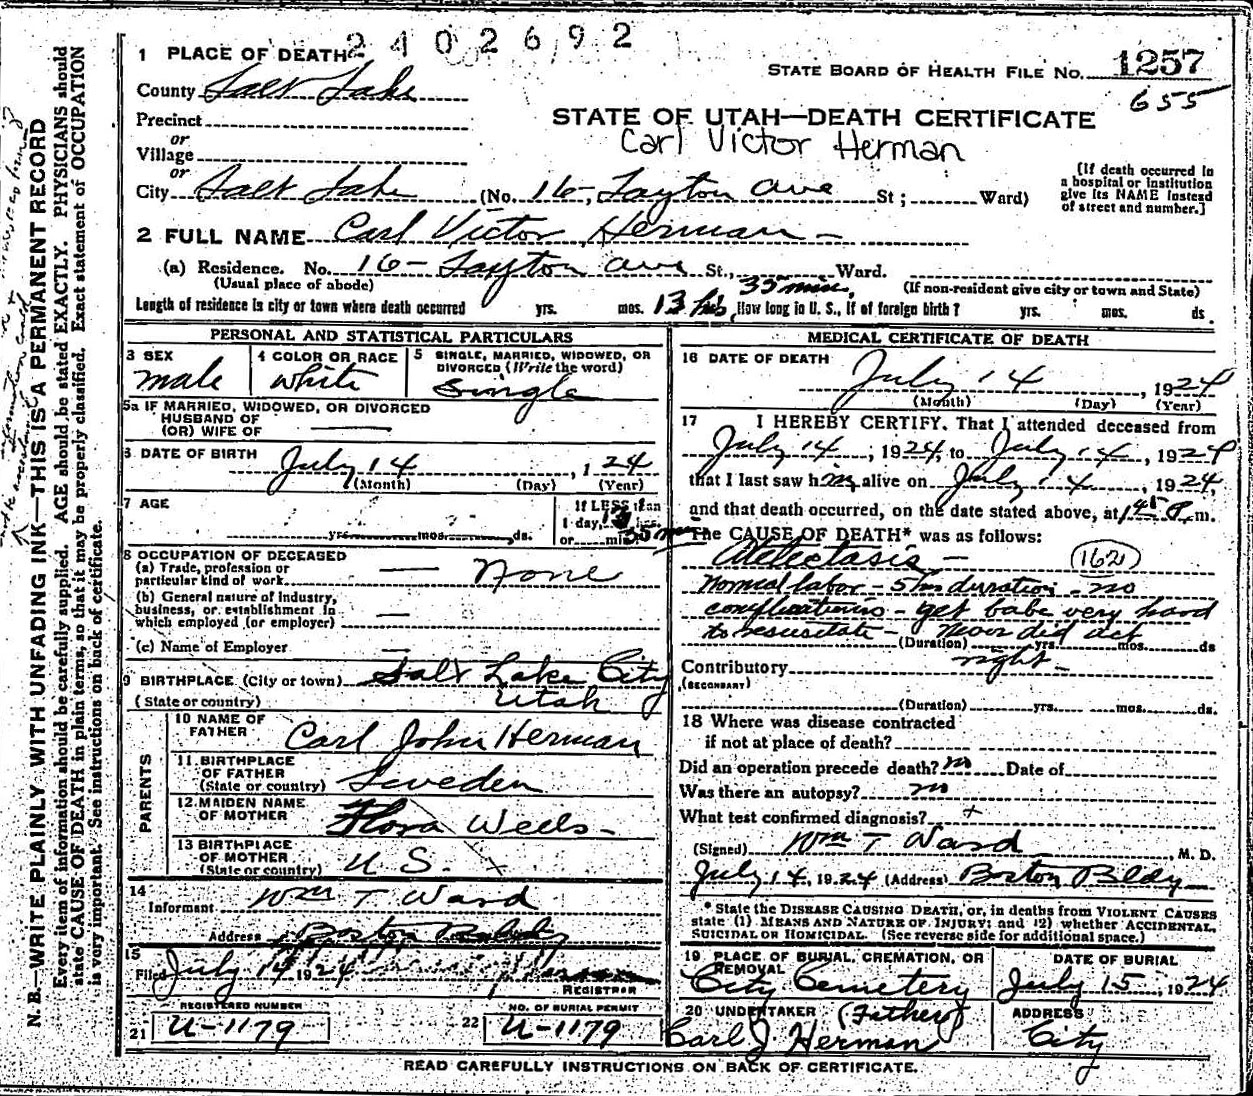 2402692
1 PLACE OF DEATH
STATE BOARD OF HEALTH FILE NO. 1257
655
County Salt Lake
STATE OF UTAH—DEATH CERTIFICATE
Carl Victor Herman
Precinct
or
Village
or
City Salt Lake (No. 16 - Layton Ave St; Ward)
[If death occurred in a hospital or institution give its NAME instead of street and number.]
2 FULL NAME Carl Victor Herman
(a) Residence. No. 16 - Layton Ave St., Ward.
(Usual place of abode) (If non-resident give city or town and State)
35 min.
Length of residence in city or town where death occurred yrs. mos. 13 hrs, How long in U. S., if of foreign birth? yrs. mos. ds.
PERSONAL AND STATISTICAL PARTICULARS
3 SEX male
4 COLOR OR RACE white
5 SINGLE, MARRIED, WIDOWED, OR DIVORCED (Write the word) Single
5a IF MARRIED, WIDOWED, OR DIVORCED
HUSBAND OF
(OR) WIFE OF
6 DATE OF BIRTH July 14, 1 24
(Month) (Day) (Year)
7 AGE yrs. mos. ds.
If LESS than
1 day, 13 hrs.
or 35 min.
8 OCCUPATION OF DECEASED
(a) Trade, profession or particular kind of work — None
(b) General nature of industry, business, or establishment in which employed (or employer) —
(c) Name of Employer —
9 BIRTHPLACE (City or town) Salt Lake City
(State or country) Utah
PARENTS
10 NAME OF FATHER Carl John Herman
11 BIRTHPLACE OF FATHER (State or country) Sweden
12 MAIDEN NAME OF MOTHER Flora Wells
13 BIRTHPLACE OF MOTHER (State or country) U. S.
14
Informant Wm T Ward
Address Boston Bldg
15
Filed July 14 1924
REGISTRAR
REGISTERED NUMBER
21 U-1179
NO. OF BURIAL PERMIT
22 U-1179
MEDICAL CERTIFICATE OF DEATH
16 DATE OF DEATH July 14, 1924
(Month) (Day) (Year)
17 I HEREBY CERTIFY, That I attended deceased from
July 14, 1924, to July 14, 1924
that I last saw him alive on July 14, 1924,
and that death occurred, on the date stated above, at 1 45 P. m.
The CAUSE OF DEATH* was as follows:
Atelectasis — 162
Normal labor - 5 hrs duration - no
complications - yet babe very hard
to resusitate - Never did act
(Duration) yrs. mos. ds
right -
Contributory
(SECONDARY)
(Duration) yrs. mos. ds.
18 Where was disease contracted
if not at place of death?
Did an operation precede death? no Date of
Was there an autopsy? no
What test confirmed diagnosis? +
(Signed) Wm T Ward, M. D.
July 14, 1924 (Address) Boston Bldg
* State the DISEASE CAUSING DEATH, or, in deaths from VIOLENT CAUSES state (1) MEANS AND NATURE OF INJURY; and (2) whether ACCIDENTAL, SUICIDAL OR HOMICIDAL. (See reverse side for additional space.)
19 PLACE OF BURIAL, CREMATION, OR REMOVAL
City Cemetery
DATE OF BURIAL
July 15, 1924
20 UNDERTAKER (Father)
Carl J. Herman
ADDRESS
City
READ CAREFULLY INSTRUCTIONS ON BACK OF CERTIFICATE.
N. B.—WRITE PLAINLY, WITH UNFADING INK—THIS IS A PERMANENT RECORD
Every item of information should be carefully supplied. AGE should be stated EXACTLY. PHYSICIANS should
state CAUSE OF DEATH in plain terms, so that it may be properly classified. Exact statement of OCCUPATION
is very important. See instructions on back of certificate.